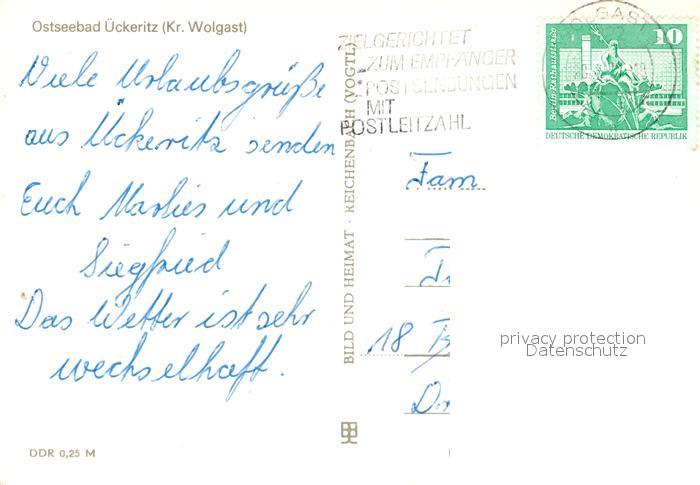 Ostseebad Ückeritz (Kr. Wolgast)
Viele Urlaubsgrüße
aus Ückeritz senden
Euch Marlies und
Siegfried
Das Wetter ist sehr
wechselhaft.
DDR 0,25 M
BILD UND HEIMAT · REICHENBACH (VOGTL)
ZIELGERICHTET
ZUM EMPFÄNGER
POSTSENDUNGEN
MIT
POSTLEITZAHL
WOLGAST
10
Berlin Rathausstraße
DEUTSCHE DEMOKRATISCHE REPUBLIK
Fam
18
privacy protection
Datenschutz